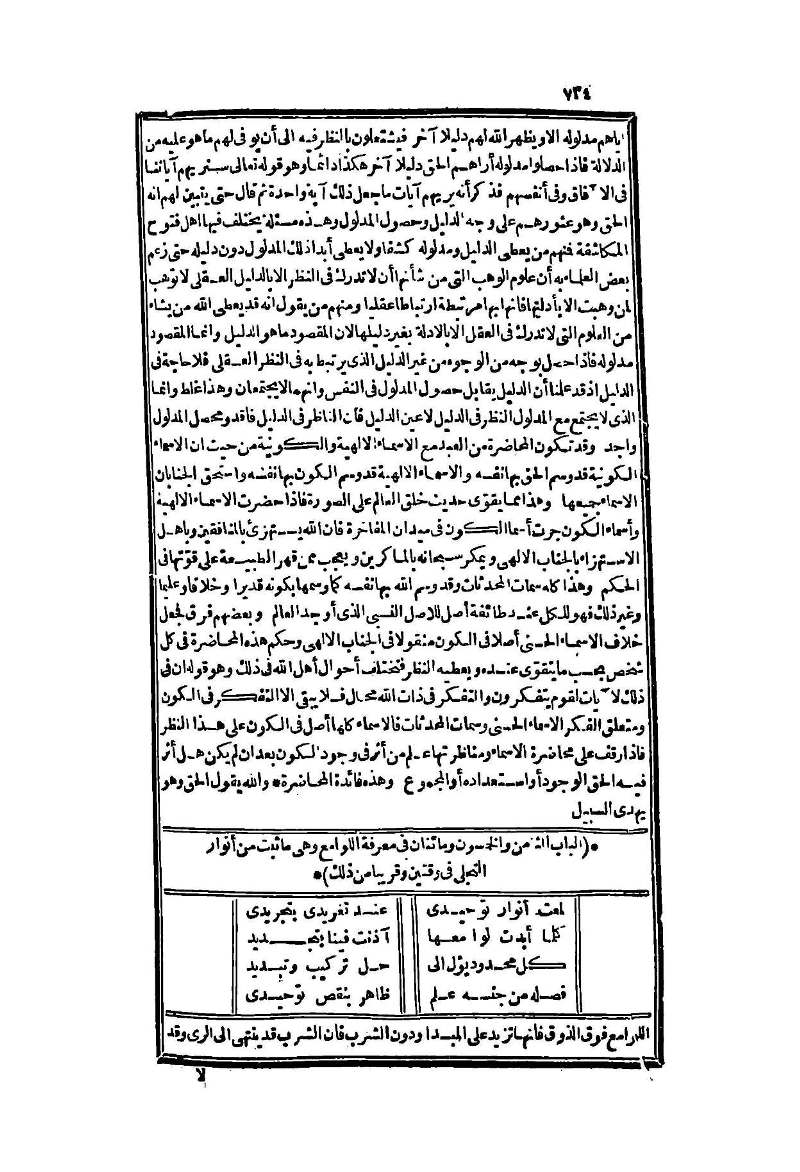 ٧٣٤
اياهم مدلوله الا ويظهر الله لهم دليلا آخر فيشتغلون بالنظر فيه الى أن يوفى لهم ما هو عليه من
الدلالة فاذا حصلوا مدلوله أراهم الحق دليلا آخر هكذا دائما وهو قوله تعالى سنريهم آياتنا
فى الآفاق وفى أنفسهم فذكر أنه يريهم آيات ما جعل ذلك آية واحدة ثم قال حتى يتبين لهم انه
الحق وهو عثورهم على وجه الدليل وحصول المدلول وهذه مسئلة يختلف فيها اهل فتوح
المكاشفة فمنهم من يعطى الدليل ومدلوله كشفا ولا يعطى أبدا ذلك المدلول دون دليله حتى زعم
بعض العلماء به أن علوم الوهب التى من شأنها أن لا تدرك فى النظر الا بالدليل العقلى لا توهب
لمن وهبت الا بأدلتها فانها بها مرتبطة ارتباطا عقليا ومنهم من يقول انه قد يعطى الله من يشاء
من العلوم التى لا تدرك فى العقل الا بالادلة بغير دليلها لان المقصود ما هو الدليل وانما المقصود
مدلوله فاذا حصل بوجه من الوجوه من غير الدليل الذى يرتبط به فى النظر العقلى فلا حاجة فى
الدليل اذ قد علمنا أن الدليل يقابل حصول المدلول فى النفس وانهما لا يجتمعان وهذا غلط وانما
الذى لا يجتمع مع المدلول النظر فى الدليل لا عين الدليل فان الناظر فى الدليل فاقد ومحصل المدلول
واجد وقد تكون المحاضرة من العبد مع الاسماء الالهية والكونية من حيث ان الاسماء
الكونية قد وسم الحق بها نفسه والاسماء الالهية قد وسم الكون بها نفسه واستحق الجنابان
الاسماء جميعها وهذا مما يقوى حديث خلق العالم على الصورة فاذا حضرت الاسماء الالهية
وأسماء الكون جرت أسماء الكون فى ميدان المفاخرة فان الله يستهزئ بالمنافقين وباهل
الاستهزاء بالجناب الالهى ويمكر سبحانه بالماكرين ويعجب ممن قهر الطبيعة على قوتها فى
الحكم وهذا كله سمات المحدثات وقد وسم الله بها نفسه كما وسمها بكونه قديرا وخلاقا وعليما
وغير ذلك فهو لكل عند طائفة أصل للاصل النسبى الذى أوجد العالم وبعضهم فرق فجعل
خلاف الاسماء الحسنى أصلا فى الكون منقولا فى الجناب الالهى وحكم هذه المحاضرة فى كل
شخص بحسب ما يتقوى عنده ويعطيه النظر فتختلف أحوال أهل الله فى ذلك وهو قوله ان فى
ذلك لآيات لقوم يتفكرون والتفكر فى ذات الله محال فلا يبقى الا التفكر فى الكون
ومتعلق الفكر الاسماء الحسنى وسمات المحدثات فالاسماء كلها أصل فى الكون على هذا النظر
فاذا وقف على محاضرة الاسماء ومناظرتها علم من أثر فى وجود الكون بعد ان لم يكن هل أثر
فيه الحق الوجود أو استعداده أو المجموع وهذه فائدة المحاضرة * والله يقول الحق وهو
يهدى السبيل
* (الباب الثامن والخمسون ومائتان فى معرفة اللوامع وهى ما ثبت من أنوار
التجلى فى وقتين وقريبا من ذلك) *
لمعت أنوار توحيدى عند تغريدى بتجريدى
كلما أبدت لوامعها آذنت فينا بتجديد
كل محدود يؤل الى حل تركيب وتبديد
فصله من جنسه علم ظاهر بنقص توحيدى
اللوامع فوق الذوق فانها تزيد على المبدا ودون الشرب فان الشرب قد ينتهى الى الرى وقد
لا